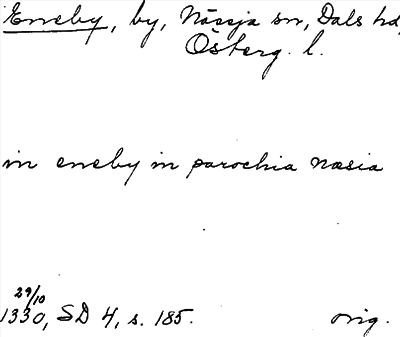 Eneby, by, Nässja sn, Dals hd,
Österg. l.
in eneby in parochia næsia
29/10
1330, SD 4, s. 185. orig.